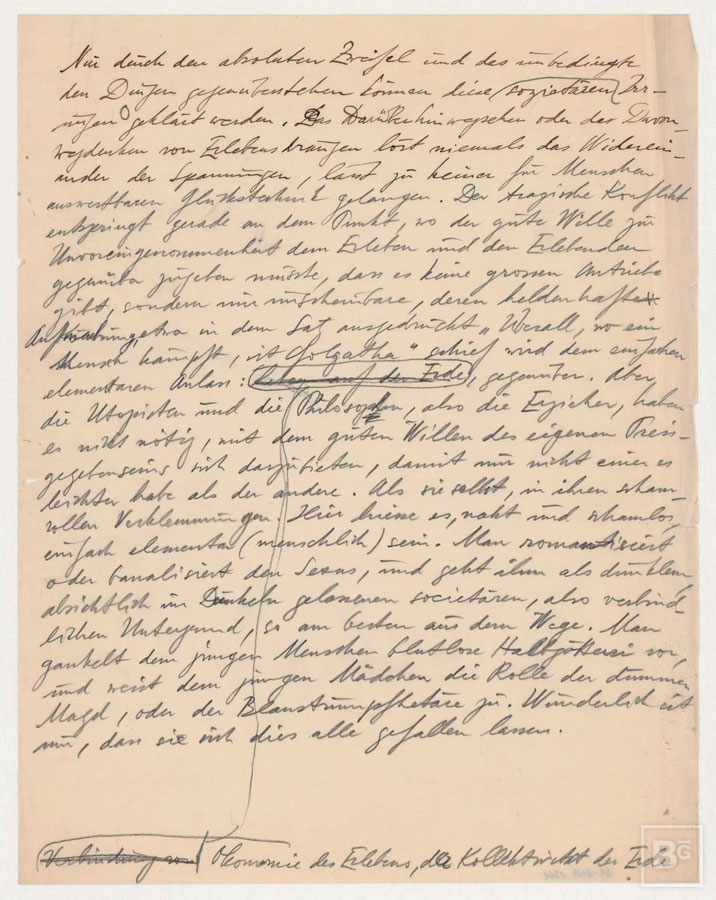 Nur durch den absoluten Zweifel und das unbedingte
den Dingen gegenüberstehen können diese sozietären Irr-
ungen geklärt werden. Das Darüberhinwegsehen oder das Davon-
wegdenken von Erlebensdrängen löst niemals das Widerein-
ander der Spannungen, lässt zu keiner für Menschen
auswertbaren Glückstechnik gelangen. Der tragische Konflikt
entspringt gerade an dem Punkt, wo der gute Wille zu
Unvoreingenommenheit dem Erleben und den Erlebenden
gegenüber zugeben müsste, dass es keine grossen Antriebe
gibt, sondern nur unscheinbare, deren heldenhafte
Aufmachung, etwa in dem Satz ausgedrückt „Überall, wo ein
Mensch kämpft, ist Golgatha" schief wird dem einfachen
elementaren Anlass: Leben auf der Erde, gegenüber. Aber,
die Utopisten und die Philosophen, also die Erzieher, haben
es nicht nötig, mit dem guten Willen des eigenen Preis-
gegebenseins sich darzubieten, damit nur nicht einer es
leichter habe als der andere. Als sie selbst, in ihren scham-
vollen Verklemmungen. Hier hiesse es, nackt und schamlos,
einfach elementar (menschlich) sein. Man romantisiert
oder banalisiert den Sexus, und geht ihm als dunklem,
absichtlich im Dunkeln gelassenen societären, also verbind-
lichen Untergrund, so am besten aus dem Wege. Man
gaukelt dem jungen Menschen blutlose Halbgötterei vor,
und weist dem jungen Mädchen die Rolle der dummen
Magd, oder der Blaustrumpfhetäre zu. Wunderlich ist
nur, dass sie sich dies alle gefallen lassen.
Verbindung von Ökonomie des Erlebens, der Kollektivität der Erde
BG